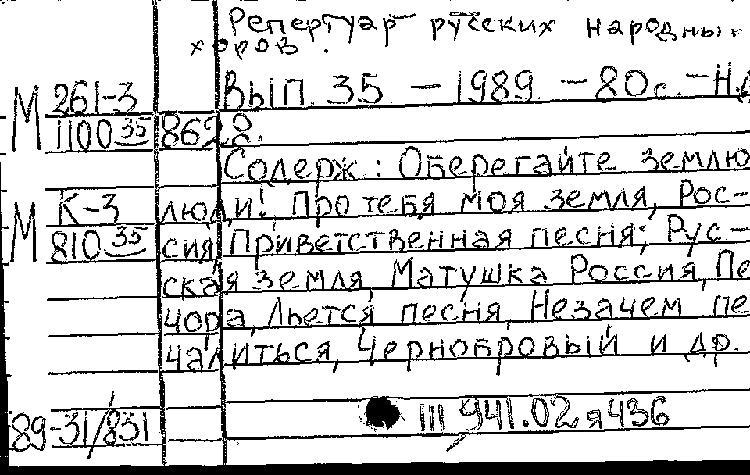 Репертуар русских народных
хоров.
М 261-3 Вып. 35 – 1989. – 80 с. –
1100 35 8698.
Содерж: Оберегайте землю
М К-3 люди! Про тебя моя земля, Рос-
810 35 сия Приветственная песня; Рус-
ская земля, Матушка Россия, Пе
чора, Льется песня, Незачем пе
чалиться, Чернобровый и др.
89-31/831 III 941.02 я436